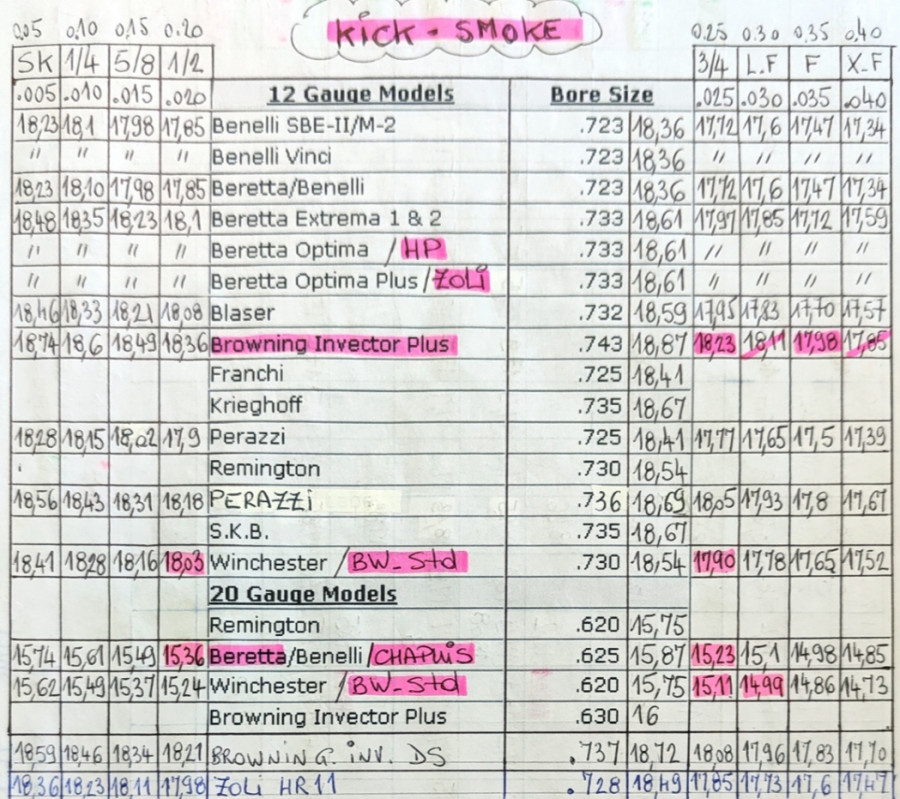 KiCK - SMOKE
0,05 0,10 0,15 0,20 0,25 0,30 0,35 0,40
SK 1/4 5/8 1/2 3/4 L.F F X.F
.005 .010 .015 .020 12 Gauge Models Bore Size .025 .030 .035 .040
18,23 18,1 17,98 17,85 Benelli SBE-II/M-2 .723 18,36 17,72 17,6 17,47 17,34
" " " " Benelli Vinci .723 18,36 " " " "
18,23 18,10 17,98 17,85 Beretta/Benelli .723 18,36 17,72 17,6 17,47 17,34
18,48 18,35 18,23 18,1 Beretta Extrema 1 & 2 .733 18,61 17,97 17,85 17,72 17,59
" " " " Beretta Optima / HP .733 18,61 " " " "
" " " " Beretta Optima Plus / ZOLi .733 18,61 " " " "
18,46 18,33 18,21 18,08 Blaser .732 18,59 17,95 17,83 17,70 17,57
18,74 18,6 18,49 18,36 Browning Invector Plus .743 18,87 18,23 18,11 17,98 17,85
Franchi .725 18,41
Krieghoff .735 18,67
18,28 18,15 18,02 17,9 Perazzi .725 18,41 17,77 17,65 17,5 17,39
Remington .730 18,54
18,56 18,43 18,31 18,18 PERAZZi .736 18,69 18,05 17,93 17,8 17,67
S.K.B. .735 18,67
18,41 18,28 18,16 18,03 Winchester / BW-Std .730 18,54 17,90 17,78 17,65 17,52
20 Gauge Models
Remington .620 15,75
15,74 15,61 15,49 15,36 Beretta/Benelli / CHAPUiS .625 15,87 15,23 15,1 14,98 14,85
15,62 15,49 15,37 15,24 Winchester / BW-Std .620 15,75 15,11 14,99 14,86 14,73
Browning Invector Plus .630 16
18,59 18,46 18,34 18,21 BROWNiNG. iNV. DS .737 18,72 18,08 17,96 17,83 17,70
18,36 18,23 18,11 17,98 ZOLi HR11 .728 18,49 17,85 17,73 17,6 17,47